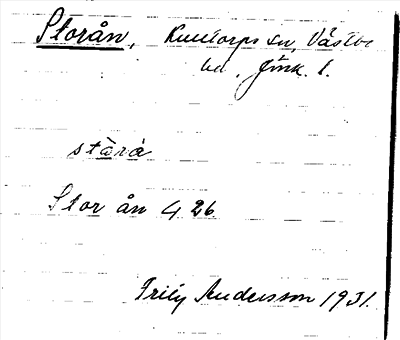 Storån, Kulltorps sn, Västbo
hd, Jönk. l.
stårå
Stor ån 4 26
Frity Andersson 1931.